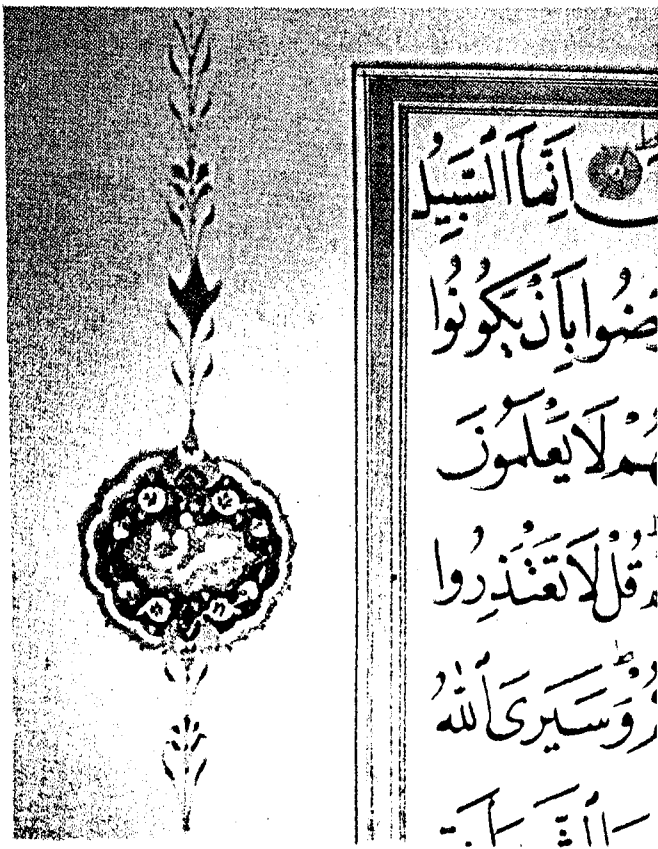 اِنَّمَا السَّبِيلُ
ضُوا بِاَنْ يَكُونُوا
هُمْ لَا يَعْلَمُونَ
قُلْ لَا تَعْتَذِرُوا
وَسَيَرَى اللّٰهُ